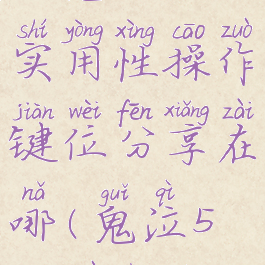 shí yòng xìng cāo zuò
实用性操作
jiàn wèi fēn xiǎng zài
键位分享在
nǎ guǐ qì
哪(鬼泣5